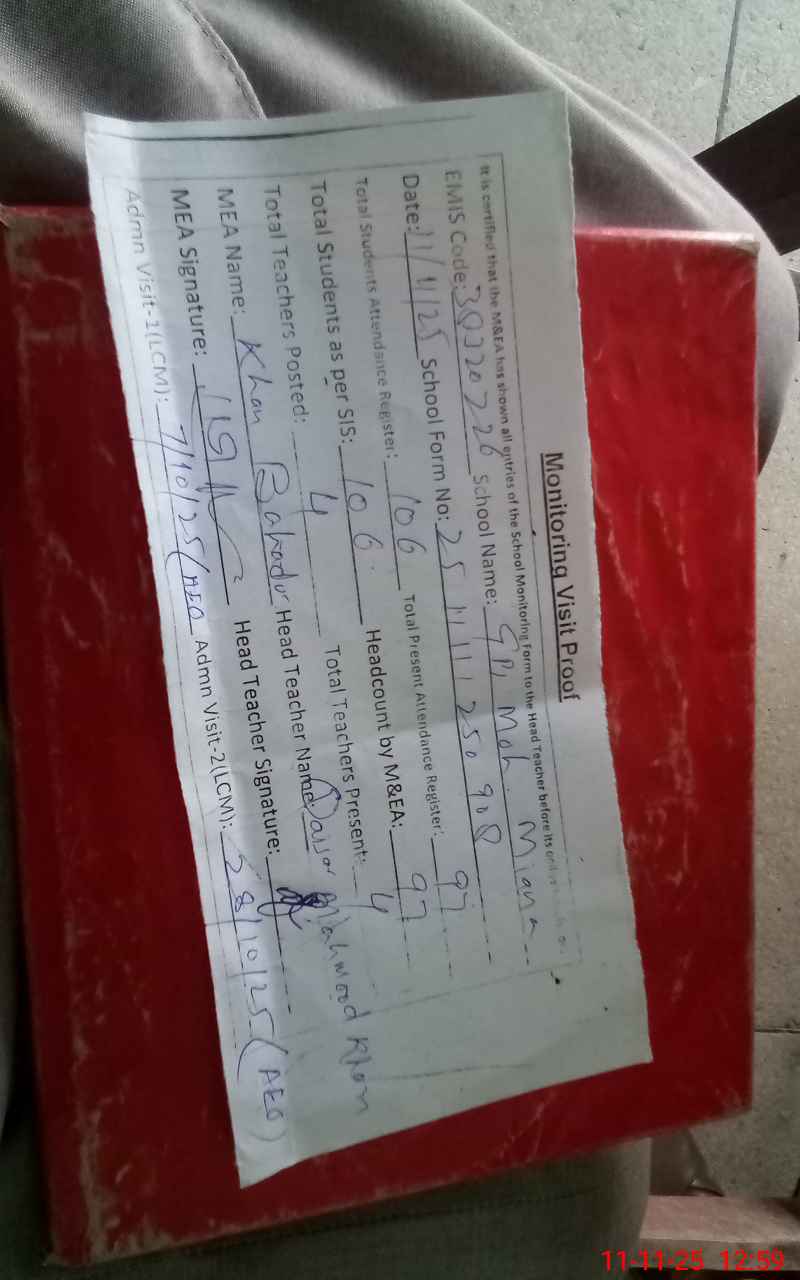 Monitoring Visit Proof
It is certified that the M&EA has shown all entries of the School Monitoring Form to the Head Teacher before its
EMIS Code: 38320726 School Name: GPS Moh. Miana
Date: 11/11/25 School Form No: 25 11 11 250908
Total Students Attendance Register: 106 Total Present Attendance Register: 97
Total Students as per SIS: 106 Headcount by M&EA: 97
Total Teachers Posted: 4 Total Teachers Present: 4
MEA Name: Khan Bahadur Head Teacher Name: Qaisar Mahmood Khan
MEA Signature: Head Teacher Signature:
Admn Visit-1(LCM): 7/10/25 (AEO Admn Visit-2(LCM): 28/10/25 (AEO)
11-11-25 12:59